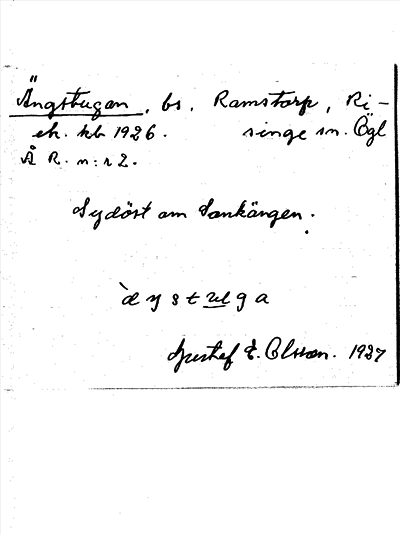 Ängstugan, bs. Ramstorp, Ri-
ek. kb 1926. singe sn. Ögl
Å R. n:r 2.
Sydöst om Sankängen.
Gustaf E. Olsson. 1927